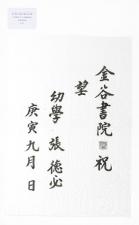 金谷書院 祝
望
幼學 張德必
庚寅九月 日